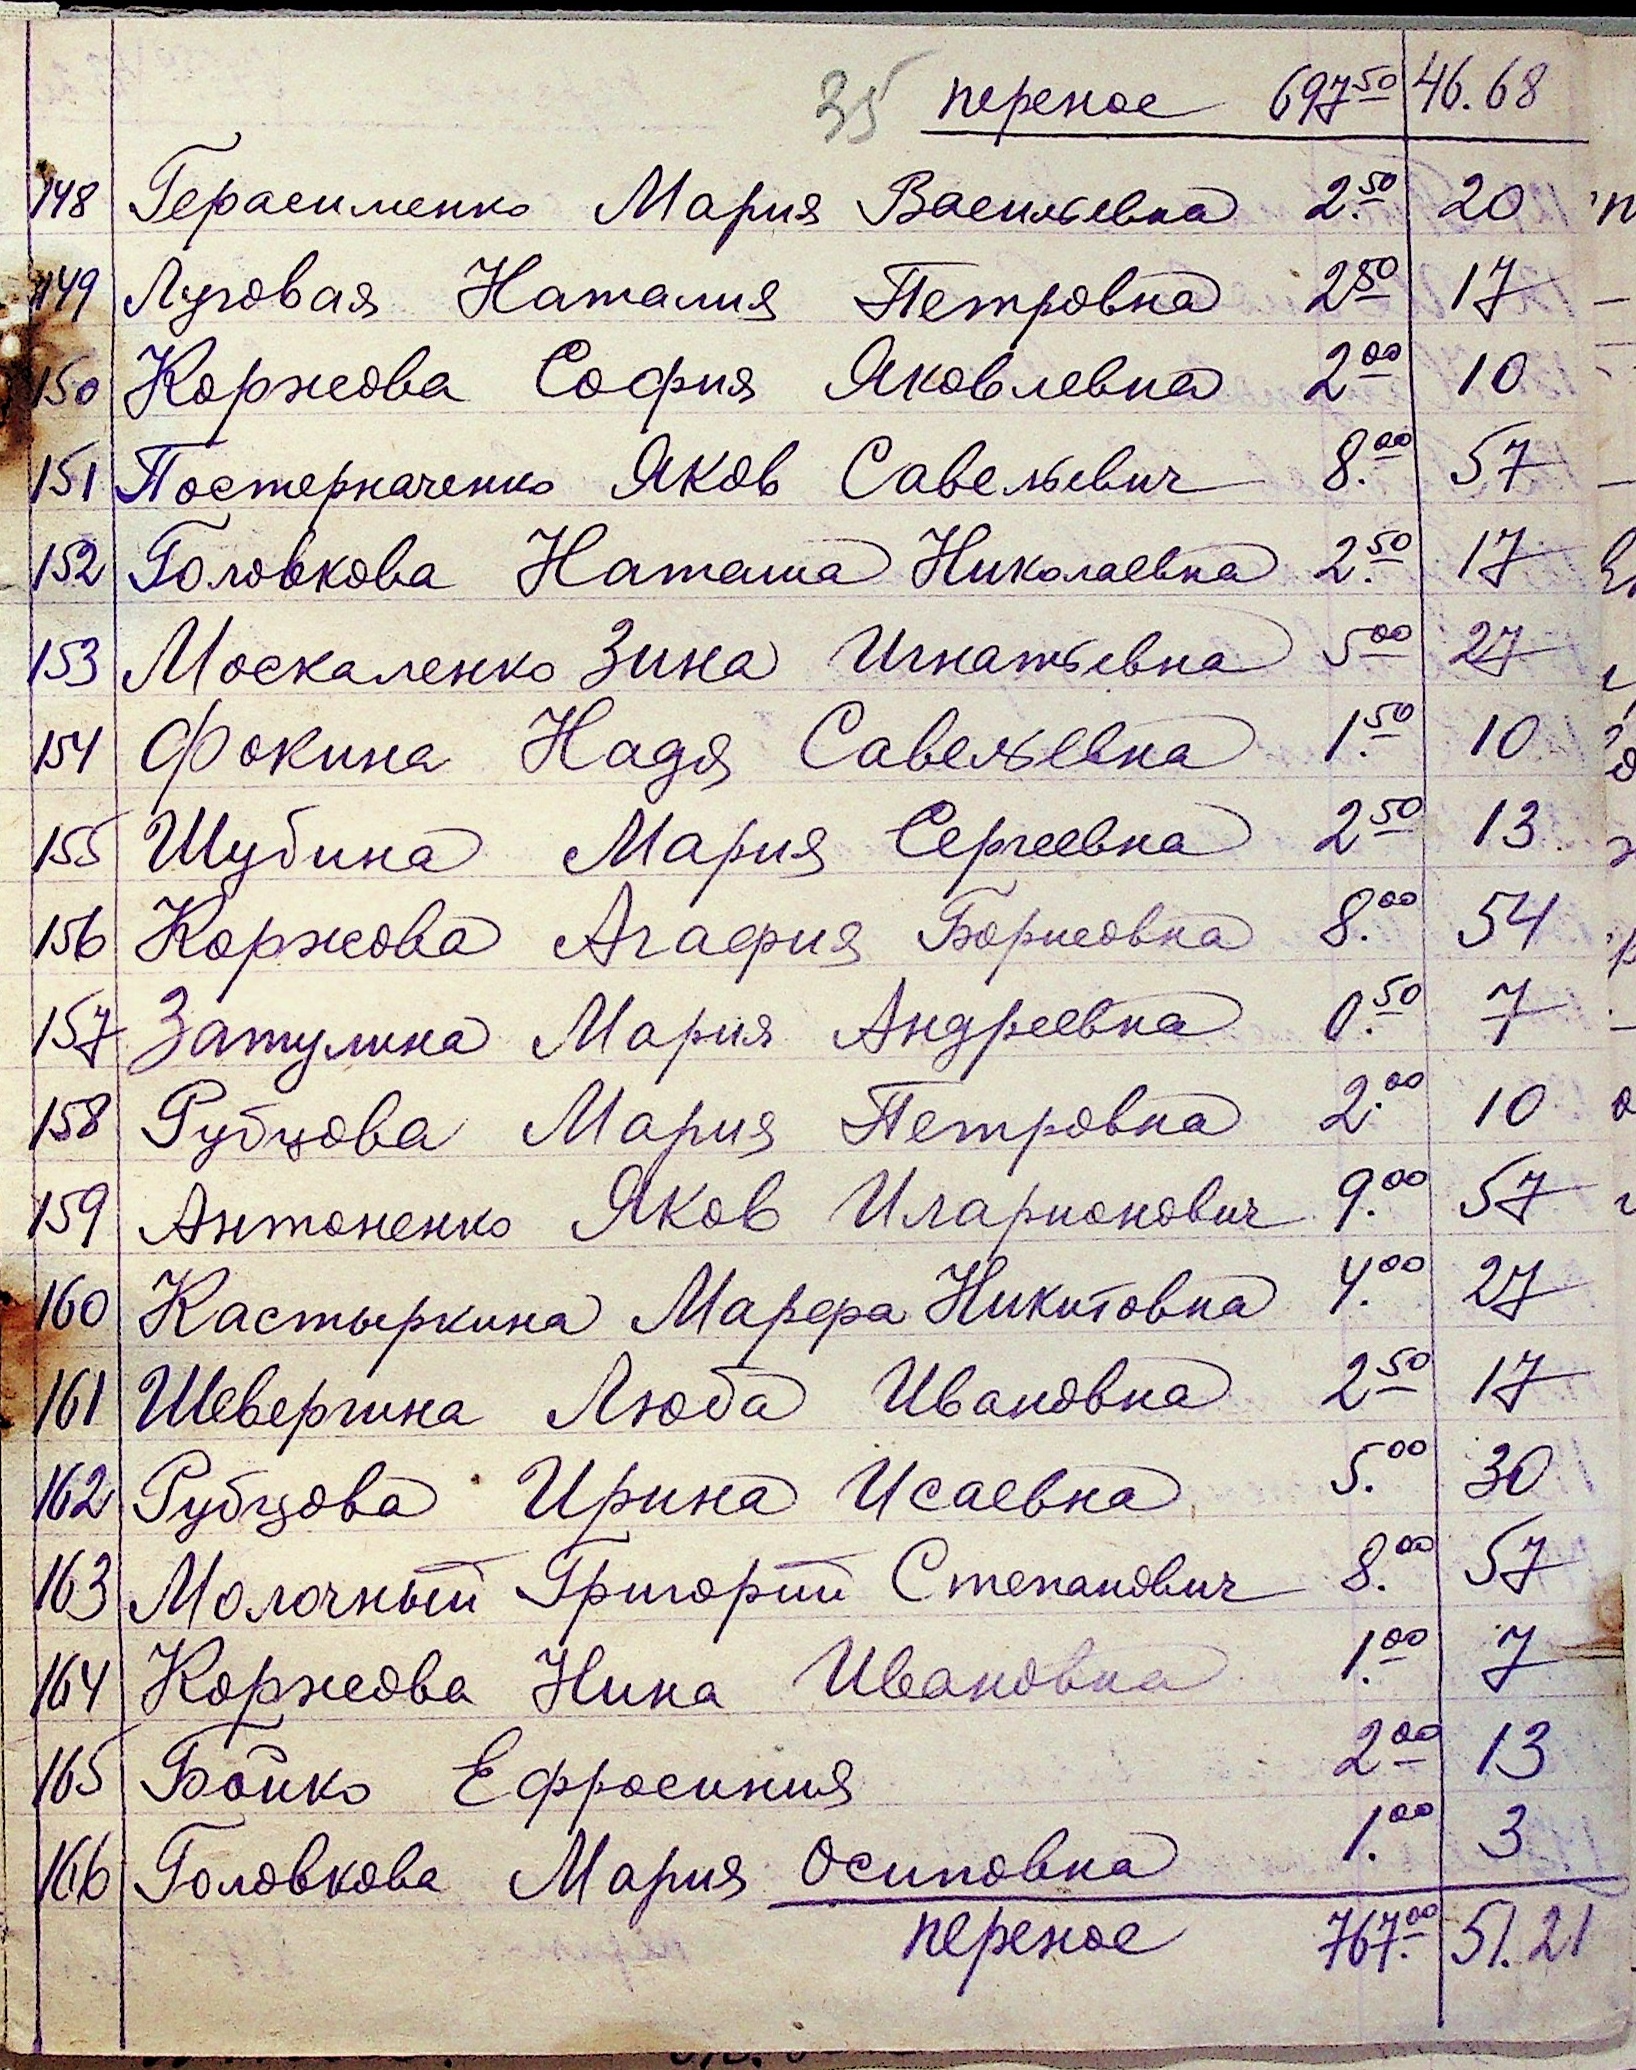 35 перенос 697 50 46.68
148 Герасименко Мария Васильевна 2.50 20
149 Луговая Наталия Петровна 2 50 17
150 Коржова София Яковлевна 2 00 10
151 Постерначенко Яков Савельевич 8.00 57
152 Головкова Наташа Николаевна 2.50 17
153 Москаленко Зина Игнатьевна 5 00 27
154 Фокина Надя Савельевна 1.50 10
155 Шубина Мария Сергеевна 2 50 13
156 Коржова Агафия Борисовна 8.00 54
157 Затулина Мария Андреевна 0.50 7
158 Рубцова Мария Петровна 2.00 10
159 Антоненко Яков Иларионович 9.00 57
160 Кастыркина Марфа Никитовна 4.00 27
161 Шевергина Люба Ивановна 2 50 17
162 Рубцова Ирина Исаевна 5.00 30
163 Молочный Григорий Степанович 8.00 57
164 Коржова Нина Ивановна 1.00 7
165 Бойко Ефросиния 2 00 13
166 Головкова Мария Осиповна 1.00 3
перенос 767.00 51.21